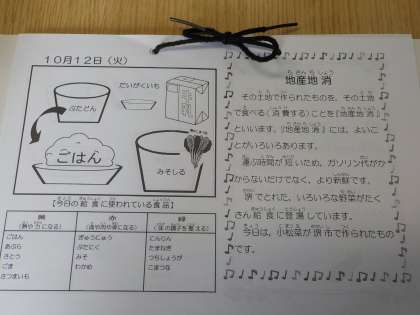 10月12日(火)
ぶたどん
だいがくいも
ごはん
みそしる
【今日の給食に使われている食品】
黄
(熱や力になる)
ごはん
あぶら
さとう
ごま
さつまいも
赤
(血や肉や骨になる)
ぎゅうにゅう
ぶたにく
みそ
わかめ
緑
(体の調子を整える)
にんじん
たまねぎ
つちしょうが
こまつな
地産地消
その土地で作られたものを、その土地
で食べる(消費する)ことを『地産地消』
といいます。『地産地消』には、よいこ
とがいろいろあります。
運ぶ時間が短いため、ガソリン代がか
からないだけでなく、より新鮮です。
堺でとれた、いろいろな野菜がたく
さん給食に登場しています。
今日は、小松菜が堺市で作られたもの
です。